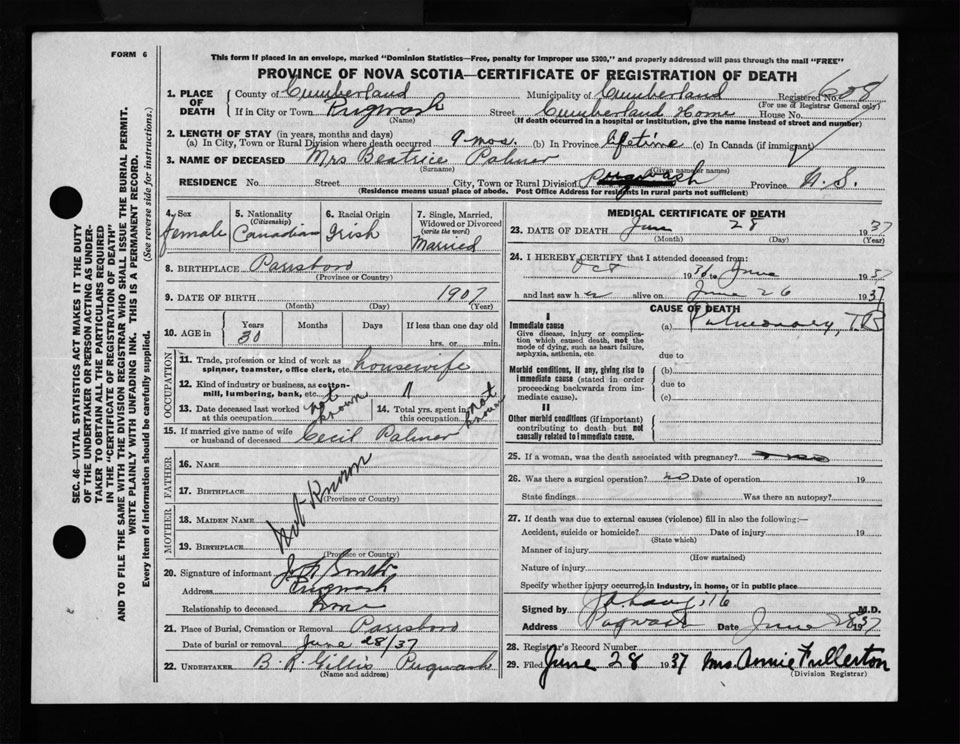 FORM 6
This form if placed in an envelope, marked "Dominion Statistics—Free, penalty for improper use $300," and properly addressed will pass through the mail "FREE"
PROVINCE OF NOVA SCOTIA—CERTIFICATE OF REGISTRATION OF DEATH
1. PLACE OF DEATH County of Cumberland Municipality of Cumberland Registered No. 608
(For use of Registrar General only)
If in City or Town Pugwash Street Cumberland Home House No.
(Name) (If death occurred in a hospital or institution, give the name instead of street and number)
2. LENGTH OF STAY (in years, months and days)
(a) In City, Town or Rural Division where death occurred 9 mos. (b) In Province lifetime (c) In Canada (if immigrant)
3. NAME OF DECEASED Mrs Beatrice Palmer
(Surname) (Given name or names)
RESIDENCE No. Street City, Town or Rural Division Pugwash Province N. S.
(Residence means usual place of abode. Post Office Address for residents in rural parts not sufficient)
SEC. 46—VITAL STATISTICS ACT MAKES IT THE DUTY
OF THE UNDERTAKER OR PERSON ACTING AS UNDER-
TAKER TO OBTAIN ALL THE PARTICULARS REQUIRED
IN THE "CERTIFICATE OF REGISTRATION OF DEATH"
AND TO FILE THE SAME WITH THE DIVISION REGISTRAR WHO SHALL ISSUE THE BURIAL PERMIT.
WRITE PLAINLY WITH UNFADING INK. THIS IS A PERMANENT RECORD.
Every item of information should be carefully supplied. (See reverse side for instructions.)
4. Sex female
5. Nationality (Citizenship) Canadian
6. Racial Origin Irish
7. Single, Married, Widowed or Divorced (write the word) Married
8. BIRTHPLACE Parrsboro
(Province or Country)
9. DATE OF BIRTH 1907
(Month) (Day) (Year)
10. AGE in Years 30 Months Days If less than one day old
hrs. or min.
OCCUPATION
11. Trade, profession or kind of work as spinner, teamster, office clerk, etc. housewife
12. Kind of industry or business, as cotton-mill, lumbering, bank, etc. "
13. Date deceased last worked at this occupation not known
14. Total yrs. spent in this occupation not known
15. If married give name of wife or husband of deceased Cecil Palmer
FATHER
16. NAME
17. BIRTHPLACE
(Province or Country)
MOTHER
18. MAIDEN NAME
19. BIRTHPLACE
(Province or Country)
Not Known
20. Signature of informant Smith
Address Pugwash
Relationship to deceased none
21. Place of Burial, Cremation or Removal Parrsboro
Date of burial or removal June 28/37
22. UNDERTAKER B. R. Gillis Pugwash
(Name and address)
MEDICAL CERTIFICATE OF DEATH
23. DATE OF DEATH June 28 1937
(Month) (Day) (Year)
24. I HEREBY CERTIFY that I attended deceased from:
Oct 1936 to June 1937
and last saw her alive on June 26 1937
CAUSE OF DEATH
I
Immediate cause (a) Pulmonary T.B
Give disease, injury or complication which caused death, not the mode of dying, such as heart failure, asphyxia, asthenia, etc.
due to
Morbid conditions, if any, giving rise to immediate cause (stated in order proceeding backwards from immediate cause).
(b)
due to
(c)
II
Other morbid conditions (if important) contributing to death but not causally related to immediate cause.
25. If a woman, was the death associated with pregnancy?
26. Was there a surgical operation? no Date of operation 19
State findings Was there an autopsy?
27. If death was due to external causes (violence) fill in also the following:—
Accident, suicide or homicide? Date of injury 19
(State which)
Manner of injury
(How sustained)
Nature of injury
Specify whether injury occurred in industry, in home, or in public place
Signed by M.D.
Address Pugwash Date June 28 1937
28. Registrar's Record Number
29. Filed June 28 1937 Mrs. Annie Fullerton
(Division Registrar)